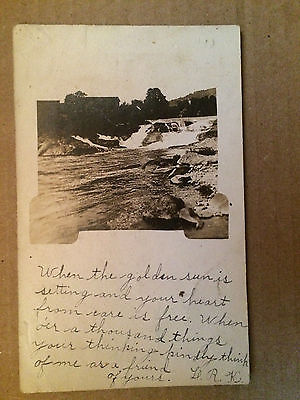 When the golden sun is
setting and your heart
from care is free. When
over a thousand things
your thinking kindly think
of me as a friend
of yours. D. R. K.